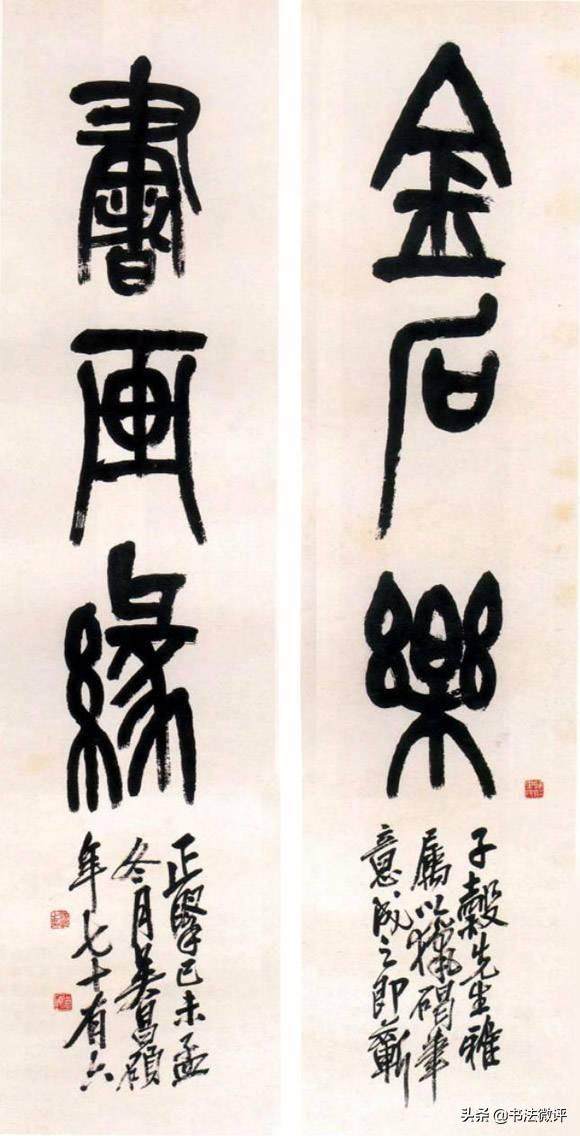 金石樂
書画緣
子穀先生雅
屬以獵碣筆
意成之即蘄
正擘己未孟
冬月吳昌碩
年七十有六
头条@书法微评